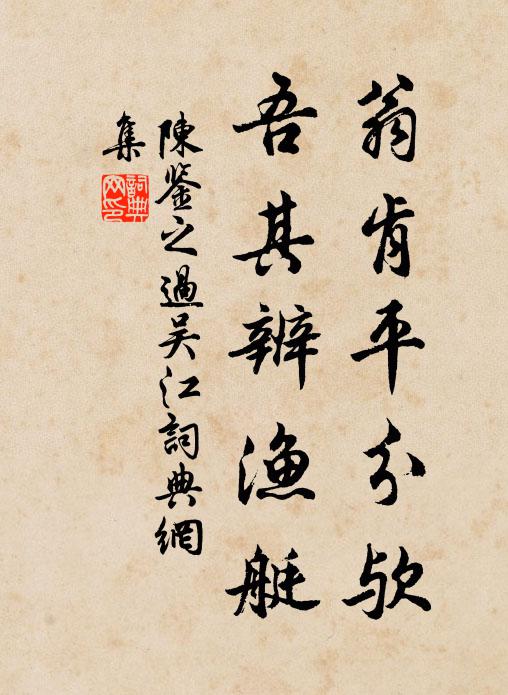 翁肯平分欤
吾其辨渔艇
陳鉴之過吴江詞典網
集
詞典網印